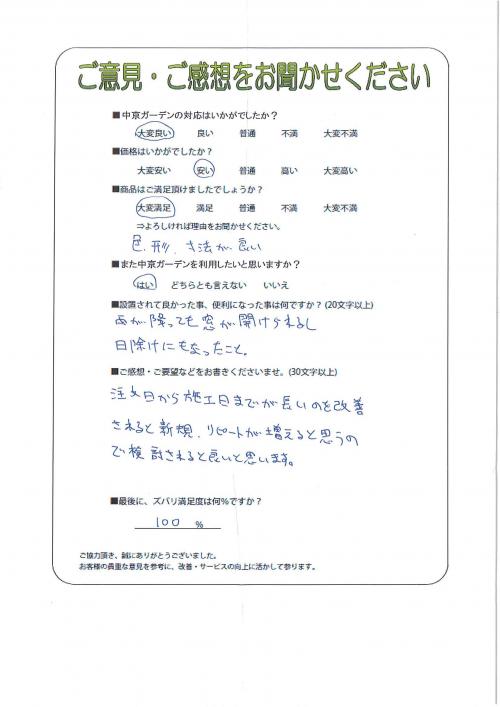 ご意見・ご感想をお聞かせください
■中京ガーデンの対応はいかがでしたか？
大変良い 良い 普通 不満 大変不満
■価格はいかがでしたか？
大変安い 安い 普通 高い 大変高い
■商品はご満足頂けましたでしょうか？
大変満足 満足 普通 不満 大変不満
⇒よろしければ理由をお聞かせください。
色、形、寸法が良い
■また中京ガーデンを利用したいと思いますか？
はい どちらとも言えない いいえ
■設置されて良かった事、便利になった事は何ですか？(20文字以上)
雨が降っても窓が開けられるし
日除けにもなったこと。
■ご感想・ご要望などをお書きくださいませ。(30文字以上)
注文日から施工日までが長いのを改善
されると新規、リピートが増えると思うの
で検討されると良いと思います。
■最後に、ズバリ満足度は何％ですか？
100 %
ご協力頂き、誠にありがとうございました。
お客様の貴重な意見を参考に、改善・サービスの向上に活かして参ります。